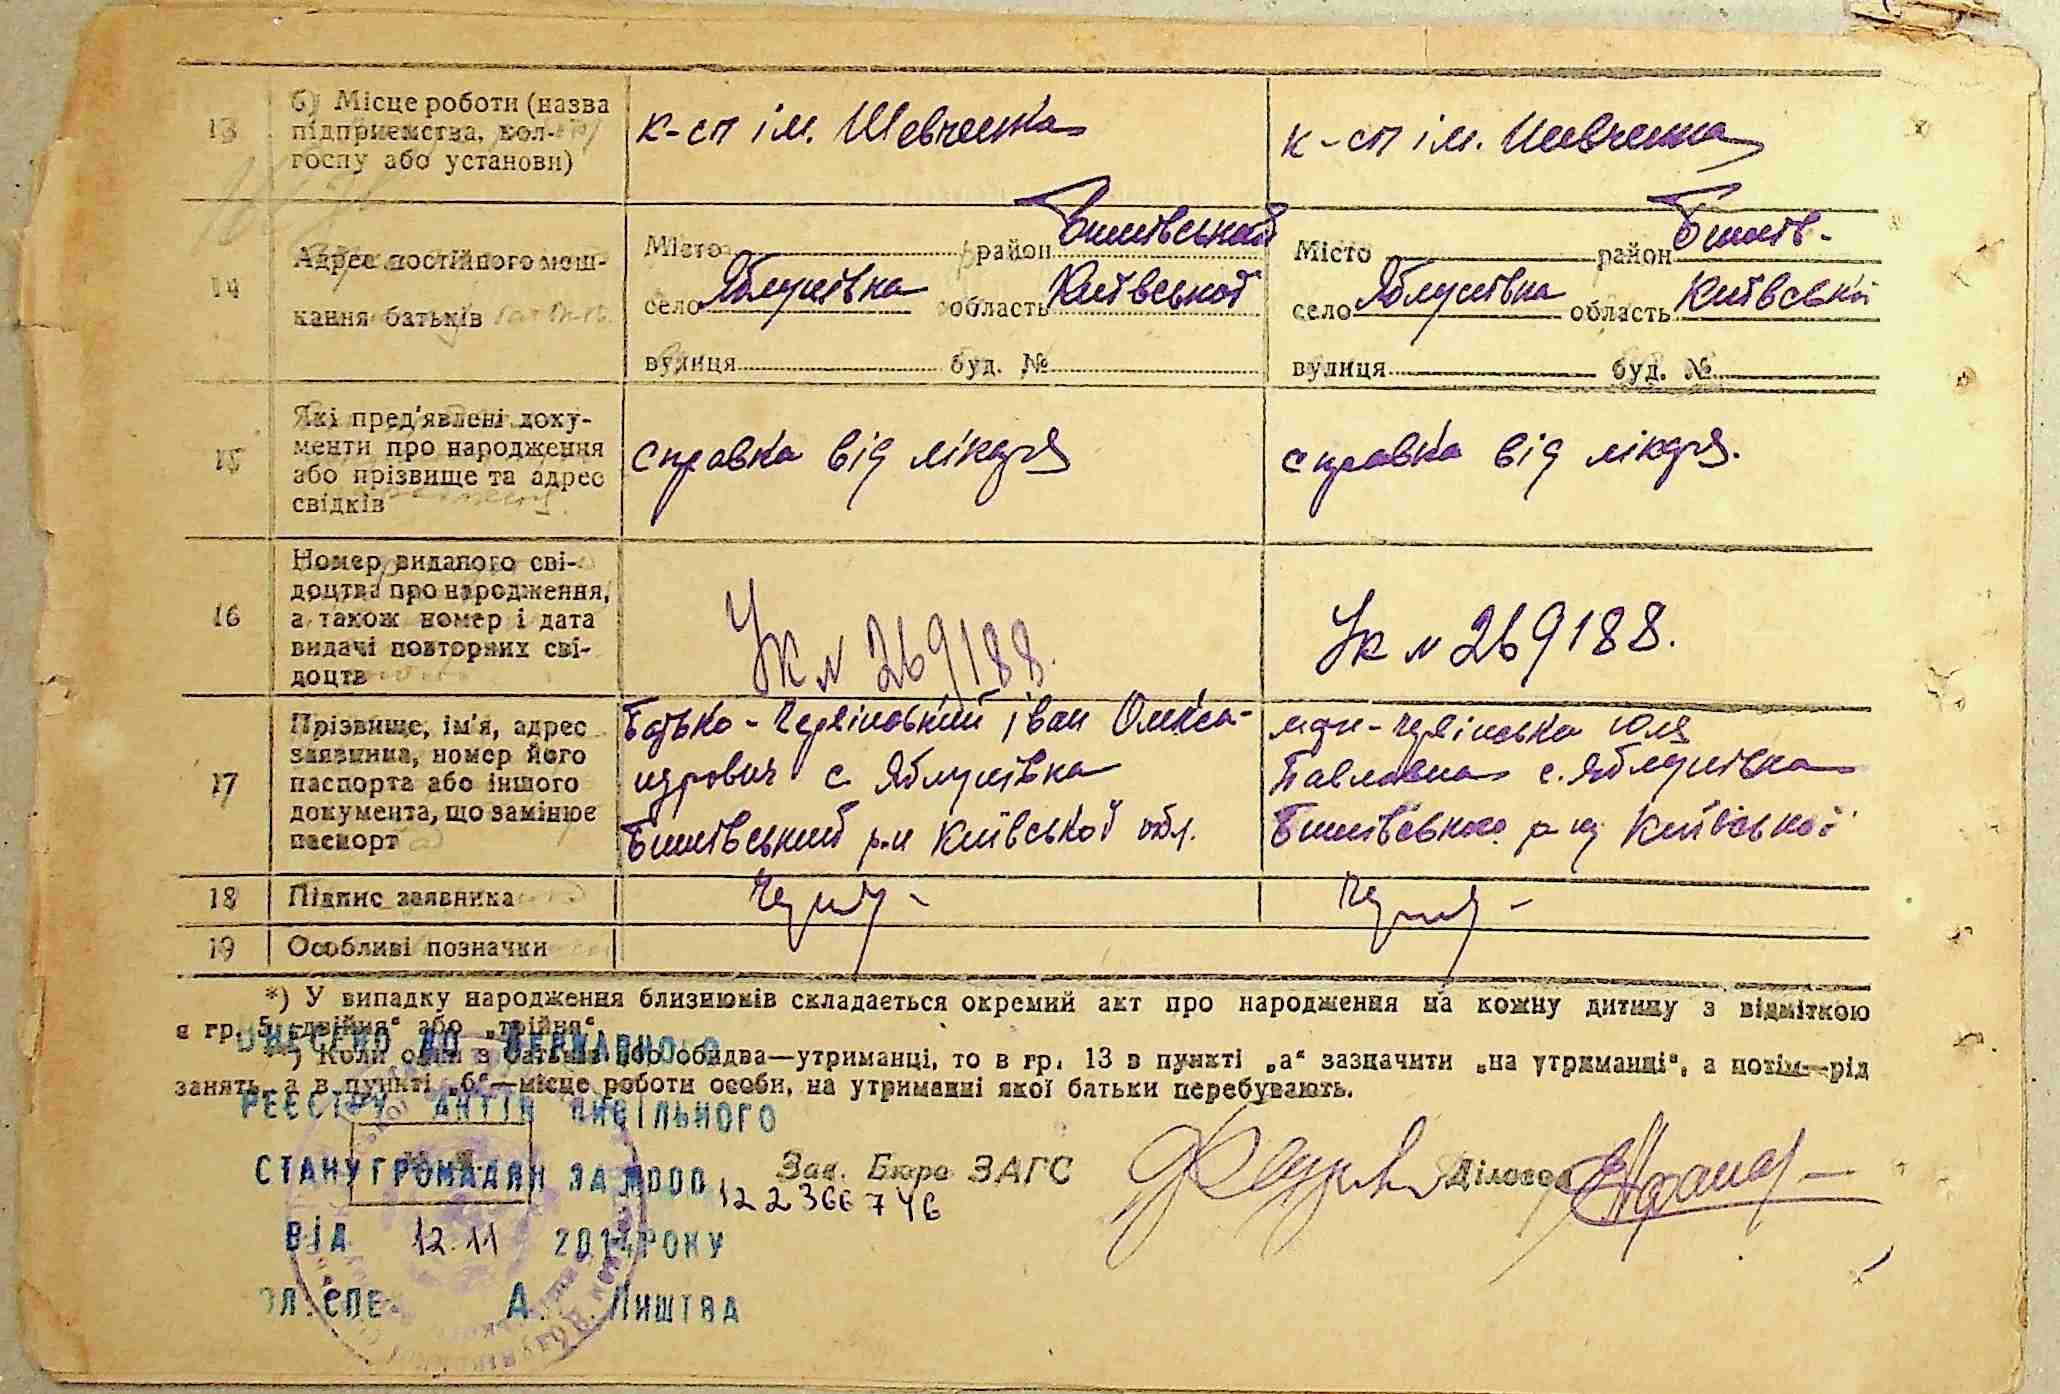 13
б) Місце роботи (назва
підприємства, кол-
госпу або установи)
к-сп ім. Шевченка
к-сп ім. Шевченка
14
Адрес постійного меш-
кання батьків
Місто район Бишівської
село Яблунівка область Київської
вулиця буд. №
Місто район Бишів-
село Яблунівка область Київські
вулиця буд. №
15
Які пред'явлені доку-
менти про народження
або прізвище та адрес
свідків
справка від лікаря
справка від лікаря.
16
Номер виданого сві-
доцтва про народження,
а також номер і дата
видачі повторних сві-
доцтв
УК № 269188.
УК № 269188.
17
Прізвище, ім'я, адрес
заявника, номер його
паспорта або іншого
документа, що замінює
паспорт
Батько - Іван Олекса-
ндрович с. Яблунівка
Бишівський р-н Київської обл.
мати - Юля
Павлівна с. Яблунівка
Бишівського р-ну Київської
18
Підпис заявника
19
Особливі позначки
*) У випадку народження близнюків складається окремий акт про народження на кожну дитину з відміткою
в гр. 5 „двійня“ або „трійня“.
*) Коли один з батьків або обидва—утриманці, то в гр. 13 в пункті „а“ зазначити „на утриманні“, а потім—рід
занять, а в пункті „б“—місце роботи особи, на утриманні якої батьки перебувають.
ВНЕСЕНО ДО ДЕРЖАВНОГО
РЕЄСТРУ АКТІВ ЦИВІЛЬНОГО
СТАНУ ГРОМАДЯН ЗА №000 122366746
ВІД 12.11 2014 РОКУ
СПЕЦ А. ЛИШТВА
Зав. Бюро ЗАГС
Діловод